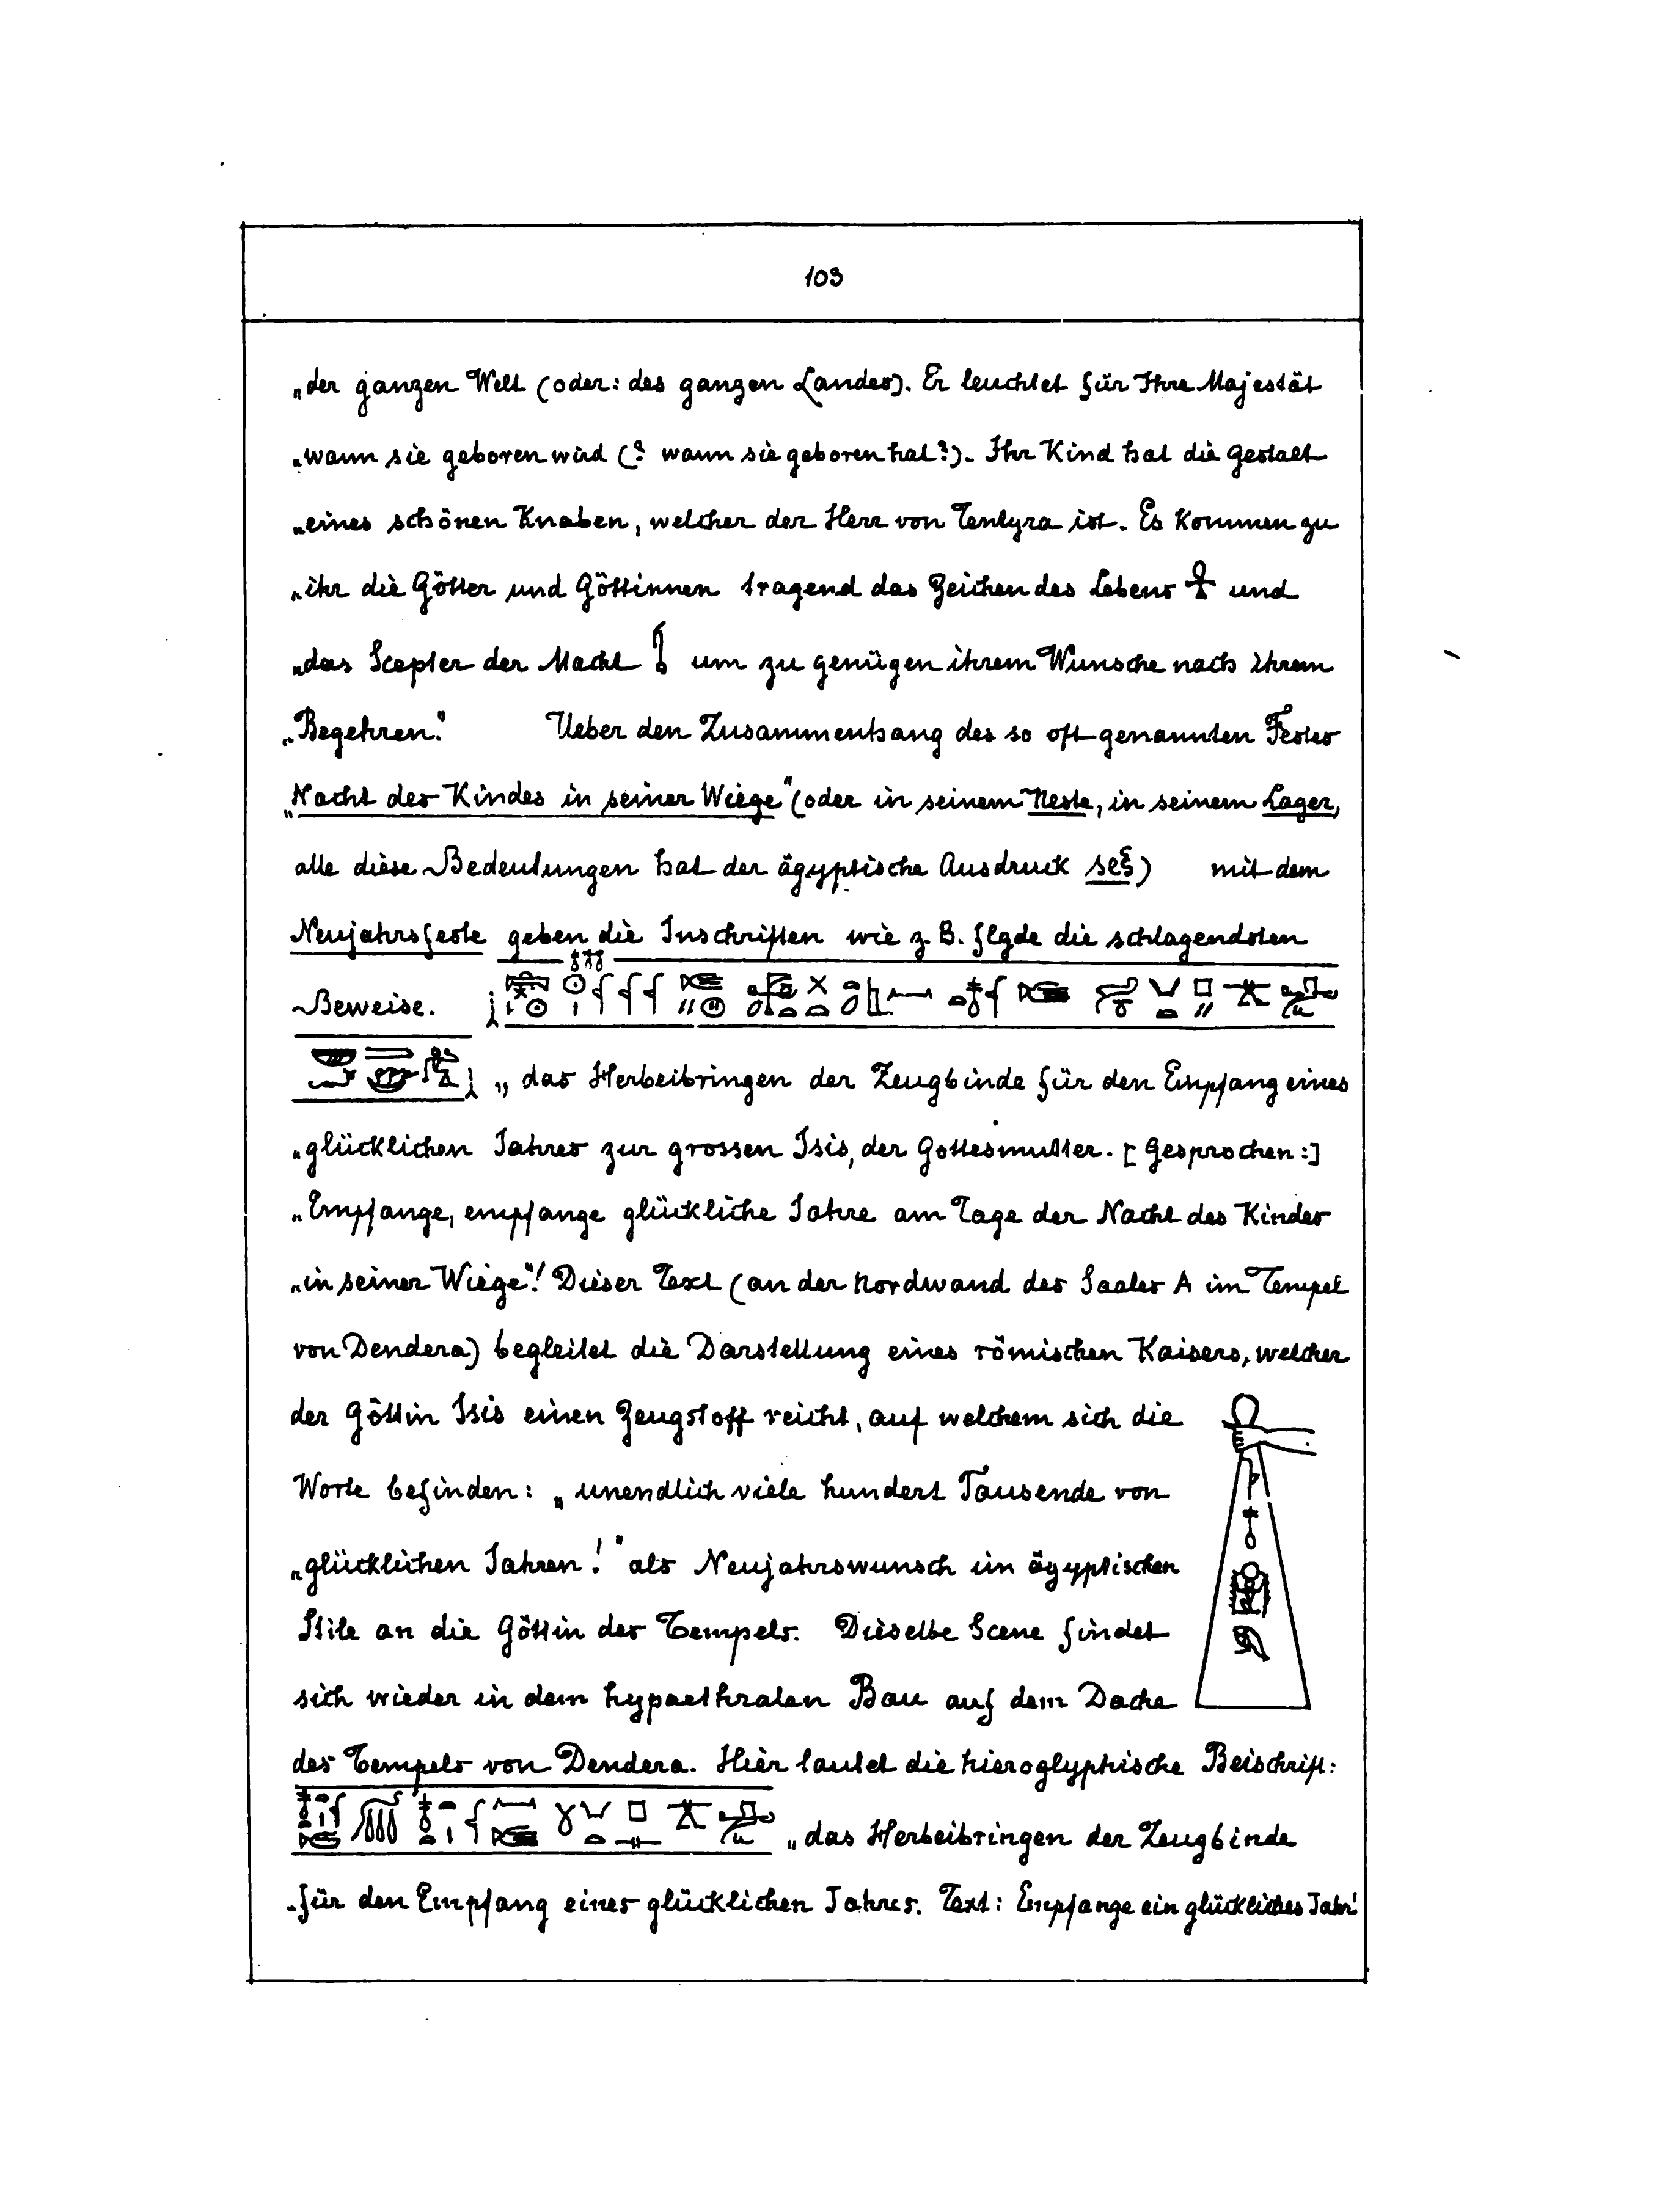 103
„der ganzen Welt (oder: des ganzen Landes). Er leuchtet für Ihre Majestät
„wann sie geboren wird (? wann sie geboren hat?). Ihr Kind hat die Gestalt
„eines schönen Knaben, welcher der Herr von Tentyra ist. Es kommen zu
„ihr die Götter und Göttinnen tragend das Zeichen des Lebens 𓋹 und
„das Scepter der Macht um zu genügen ihrem Wunsche nach ihrem
„Begehren." Ueber den Zusammenhang des so oft genannten Festes
„Nacht des Kindes in seiner Wiege" (oder in seinem Neste, in seinem Lager,
alle diese Bedeutungen hat der ägyptische Ausdruck seš) mit dem
Neujahrsfeste geben die Inschriften wie z. B. flgde die schlagendsten
Beweise.
„das Herbeibringen der Zeugbinde für den Empfang eines
„glücklichen Jahres zur grossen Isis, der Gottesmutter. [Gesprochen:]
„Empfange, empfange glückliche Jahre am Tage der Nacht des Kindes
„in seiner Wiege"! Dieser Text (an der Nordwand des Saales A im Tempel
von Dendera) begleitet die Darstellung eines römischen Kaisers, welcher
der Göttin Isis einen Zeugstoff reicht, auf welchem sich die
Worte befinden: „unendlich viele hundert Tausende von
„glücklichen Jahren!" als Neujahrswunsch im ägyptischen
Stile an die Göttin des Tempels. Dieselbe Scene findet
sich wieder in dem hypaethralen Bau auf dem Dache
des Tempels von Dendera. Hier lautet die hieroglyphische Beischrift:
„das Herbeibringen der Zeugbinde
„für den Empfang eines glücklichen Jahres. Text: Empfange ein glückliches Jahr!